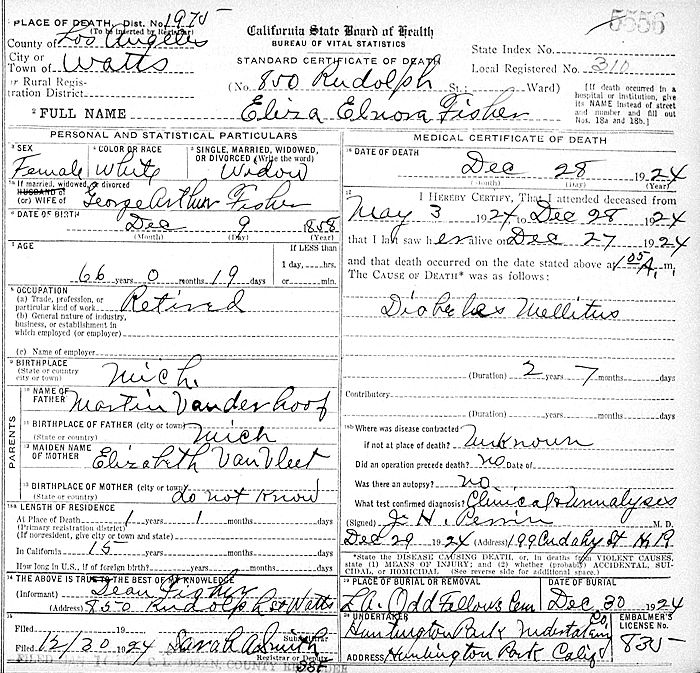 PLACE OF DEATH, Dist. No. 1975
(To be inserted by Registrar)
County of Los Angeles
City or
Town of Watts
or Rural Regis-
tration District
California State Board of Health
BUREAU OF VITAL STATISTICS
STANDARD CERTIFICATE OF DEATH
(No. 850 Rudolph St.; Ward)
5556
State Index No.
Local Registered No. 310
[If death occurred in a
hospital or institution, give
its NAME instead of street
and number and fill out
Nos. 18a and 18b.]
2 FULL NAME Eliza Elnora Fisher
PERSONAL AND STATISTICAL PARTICULARS
3 SEX
Female
4 COLOR OR RACE
White
5 SINGLE, MARRIED, WIDOWED,
OR DIVORCED (Write the word)
Widow
If married, widowed, or divorced
HUSBAND of
(or) WIFE of George Arthur Fisher
6 DATE OF BIRTH
Dec 9 1858
(Month) (Day) (Year)
7 AGE
66 years 0 months 19 days
If LESS than
1 day, hrs.
or min.
8 OCCUPATION
(a) Trade, profession, or
particular kind of work Retired
(b) General nature of industry,
business, or establishment in
which employed (or employer)
(c) Name of employer
9 BIRTHPLACE
(State or country
city or town) Mich.
PARENTS
10 NAME OF
FATHER Martin Vanderhoof
11 BIRTHPLACE OF FATHER (city or town)
(State or country) Mich
12 MAIDEN NAME
OF MOTHER Elizabeth VanVleet
13 BIRTHPLACE OF MOTHER (city or town)
(State or country) do not know
LENGTH OF RESIDENCE
At Place of Death 1 years 1 months days
(Primary registration district)
(If nonresident, give city or town and state)
In California 15 years months days
How long in U.S., if of foreign birth? years months days
14 THE ABOVE IS TRUE TO THE BEST OF MY KNOWLEDGE
(Informant) Dean Fisher
(Address) 850 Rudolph St Watts
15
Filed 19
Filed 12/30 1924 Sarah A Smith
Registrar or Deputy
COUNTY RECORDER
MEDICAL CERTIFICATE OF DEATH
16 DATE OF DEATH
Dec 28 1924
(Month) (Day) (Year)
17 I HEREBY CERTIFY, That I attended deceased from
May 3 1924 to Dec 28 1924
that I last saw her alive on Dec 27 1924
and that death occurred on the date stated above at 1 05 A. m.
The CAUSE OF DEATH* was as follows:
Diabetes Mellitus
(Duration) 2 years 7 months days
Contributory
(Duration) years months days
18b Where was disease contracted
if not at place of death? Unknown
Did an operation precede death? no Date of
Was there an autopsy? no
What test confirmed diagnosis? Clinical & Urinalysis
(Signed) J. H. Perrin M. D.
Dec 29 1924 (Address) 199 Cudahy St H.P.
*State the DISEASE CAUSING DEATH, or, in deaths from VIOLENT CAUSES,
state (1) MEANS OF INJURY; and (2) whether (probably) ACCIDENTAL, SUI-
CIDAL, or HOMICIDAL. (See reverse side for additional space.)
19 PLACE OF BURIAL OR REMOVAL
L.A. Odd Fellows Cem
DATE OF BURIAL
Dec. 30 1924
20 UNDERTAKER
Huntington Park Undertaking Co.
ADDRESS Huntington Park Calif
EMBALMER'S
LICENSE No.
835